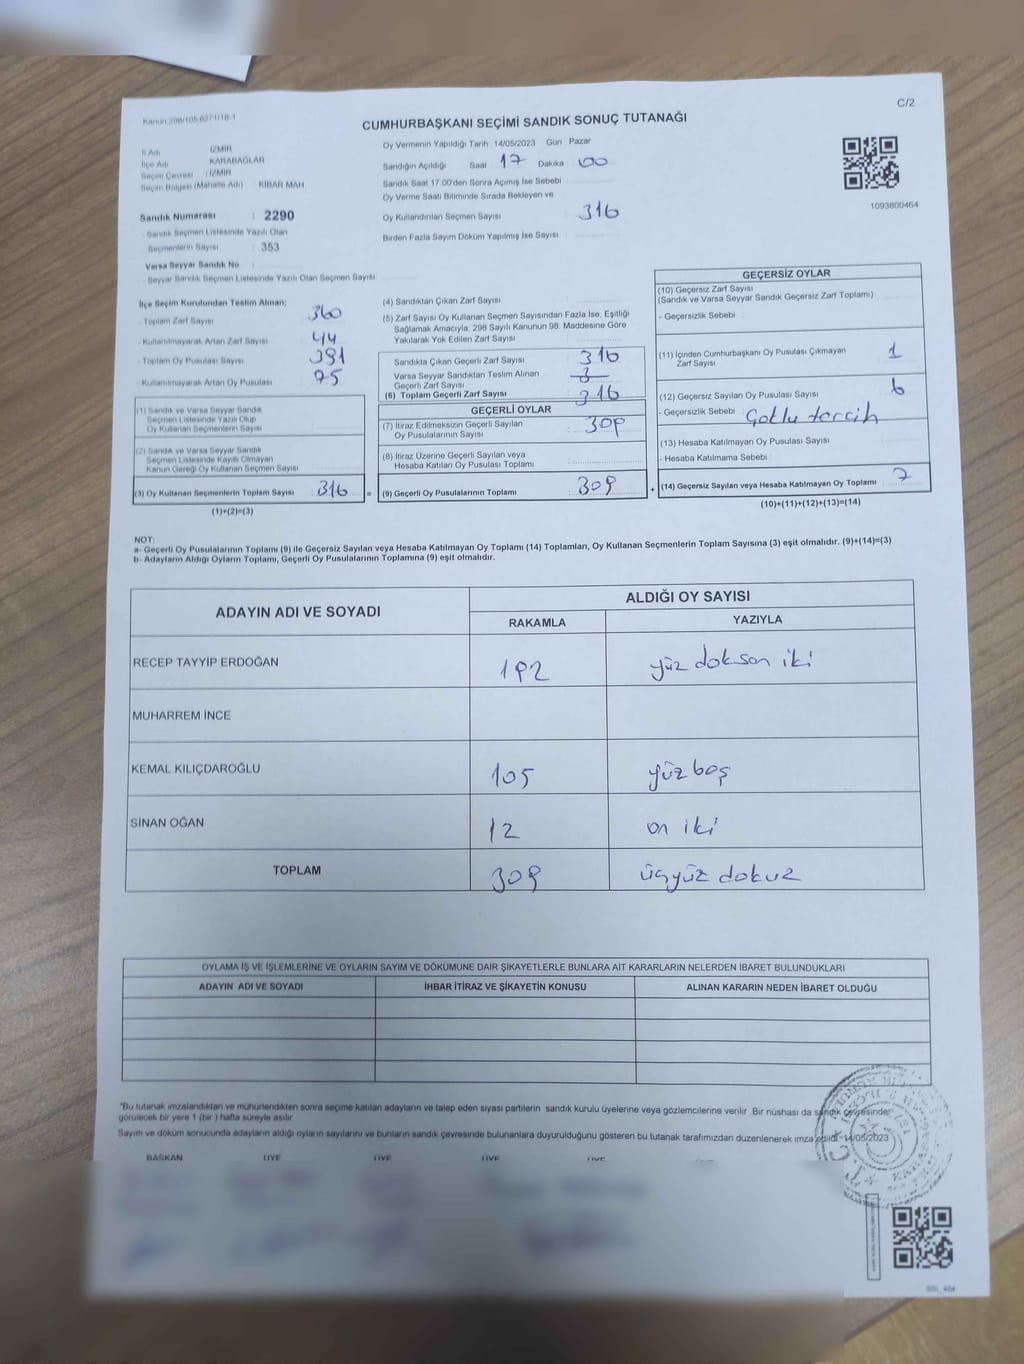 Kanun 298/105-6271/18-1
C/2
CUMHURBAŞKANI SEÇİMİ SANDIK SONUÇ TUTANAĞI
İl Adı İZMİR
İlçe Adı KARABAĞLAR
Seçim Çevresi : İZMİR
Seçim Bölgesi (Mahalle Adı) KİBAR MAH.
Sandık Numarası : 2290
- Sandık Seçmen Listesinde Yazılı Olan
Seçmenlerin Sayısı : 353
Varsa Seyyar Sandık No
- Seyyar Sandık Seçmen Listesinde Yazılı Olan Seçmen Sayısı
Oy Vermenin Yapıldığı Tarih 14/05/2023 Gün Pazar
Sandığın Açıldığı Saat 17 Dakika : 00
Sandık Saat 17.00'den Sonra Açımış İse Sebebi
Oy Verme Saati Bitiminde Sırada Bekleyen ve
Oy Kullandırılan Seçmen Sayısı : 316
Birden Fazla Sayım Döküm Yapılmış İse Sayısı
1093800464
İlçe Seçim Kurulundan Teslim Alınan;
- Toplam Zarf Sayısı 360
- Kullanılmayarak Artan Zarf Sayısı 44
- Toplam Oy Pusulası Sayısı 391
- Kullanılmayarak Artan Oy Pusulası 75
(1) Sandık ve Varsa Seyyar Sandık
Seçmen Listesinde Yazılı Olup
Oy Kullanan Seçmenlerin Sayısı
(2) Sandık ve Varsa Seyyar Sandık
Seçmen Listesinde Kayıtlı Olmayan
Kanun Gereği Oy Kullanan Seçmen Sayısı
(3) Oy Kullanan Seçmenlerin Toplam Sayısı : 316 =
(1)+(2)=(3)
(4) Sandıktan Çıkan Zarf Sayısı
(5) Zarf Sayısı Oy Kullanan Seçmen Sayısından Fazla İse, Eşitliği
Sağlamak Amacıyla, 298 Sayılı Kanunun 98. Maddesine Göre
Yakılarak Yok Edilen Zarf Sayısı
Sandıkta Çıkan Geçerli Zarf Sayısı : 316
Varsa Seyyar Sandıktan Teslim Alınan
Geçerli Zarf Sayısı
(6) Toplam Geçerli Zarf Sayısı : 316
GEÇERLİ OYLAR
(7) İtiraz Edilmeksizin Geçerli Sayılan
Oy Pusulalarının Sayısı : 309
(8) İtiraz Üzerine Geçerli Sayılan veya
Hesaba Katılan Oy Pusulası Toplamı
(9) Geçerli Oy Pusulalarının Toplamı : 309 +
GEÇERSİZ OYLAR
(10) Geçersiz Zarf Sayısı
(Sandık ve Varsa Seyyar Sandık Geçersiz Zarf Toplamı)
- Geçersizlik Sebebi
(11) İçinden Cumhurbaşkanı Oy Pusulası Çıkmayan
Zarf Sayısı 1
(12) Geçersiz Sayılan Oy Pusulası Sayısı 6
- Geçersizlik Sebebi Çoklu tercih
(13) Hesaba Katılmayan Oy Pusulası Sayısı
- Hesaba Katılmama Sebebi
(14) Geçersiz Sayılan veya Hesaba Katılmayan Oy Toplamı : 7
(10)+(11)+(12)+(13)=(14)
NOT:
a- Geçerli Oy Pusulalarının Toplamı (9) ile Geçersiz Sayılan veya Hesaba Katılmayan Oy Toplamı (14) Toplamları, Oy Kullanan Seçmenlerin Toplam Sayısına (3) eşit olmalıdır. (9)+(14)=(3)
b- Adayların Aldığı Oyların Toplamı, Geçerli Oy Pusulalarının Toplamına (9) eşit olmalıdır.
ADAYIN ADI VE SOYADI
ALDIĞI OY SAYISI
RAKAMLA YAZIYLA
RECEP TAYYİP ERDOĞAN 192 yüz doksan iki
MUHARREM İNCE
KEMAL KILIÇDAROĞLU 105 yüz beş
SİNAN OĞAN 12 on iki
TOPLAM 309 üçyüz dokuz
OYLAMA İŞ VE İŞLEMLERİNE VE OYLARIN SAYIM VE DÖKÜMÜNE DAİR ŞİKAYETLERLE BUNLARA AİT KARARLARIN NELERDEN İBARET BULUNDUKLARI
ADAYIN ADI VE SOYADI İHBAR İTİRAZ VE ŞİKAYETİN KONUSU ALINAN KARARIN NEDEN İBARET OLDUĞU
*Bu tutanak imzalandıktan ve mühürlendikten sonra seçime katılan adayların ve talep eden siyasi partilerin sandık kurulu üyelerine veya gözlemcilerine verilir. Bir nüshası da sandık çevresinde
görülecek bir yere 1 (bir ) hafta süreyle asılır.
Sayım ve döküm sonucunda adayların aldığı oyların sayılarını ve bunların sandık çevresinde bulunanlara duyurulduğunu gösteren bu tutanak tarafımızdan düzenlenerek imza edildi. 14/05/2023
BAŞKAN ÜYE ÜYE ÜYE ÜYE